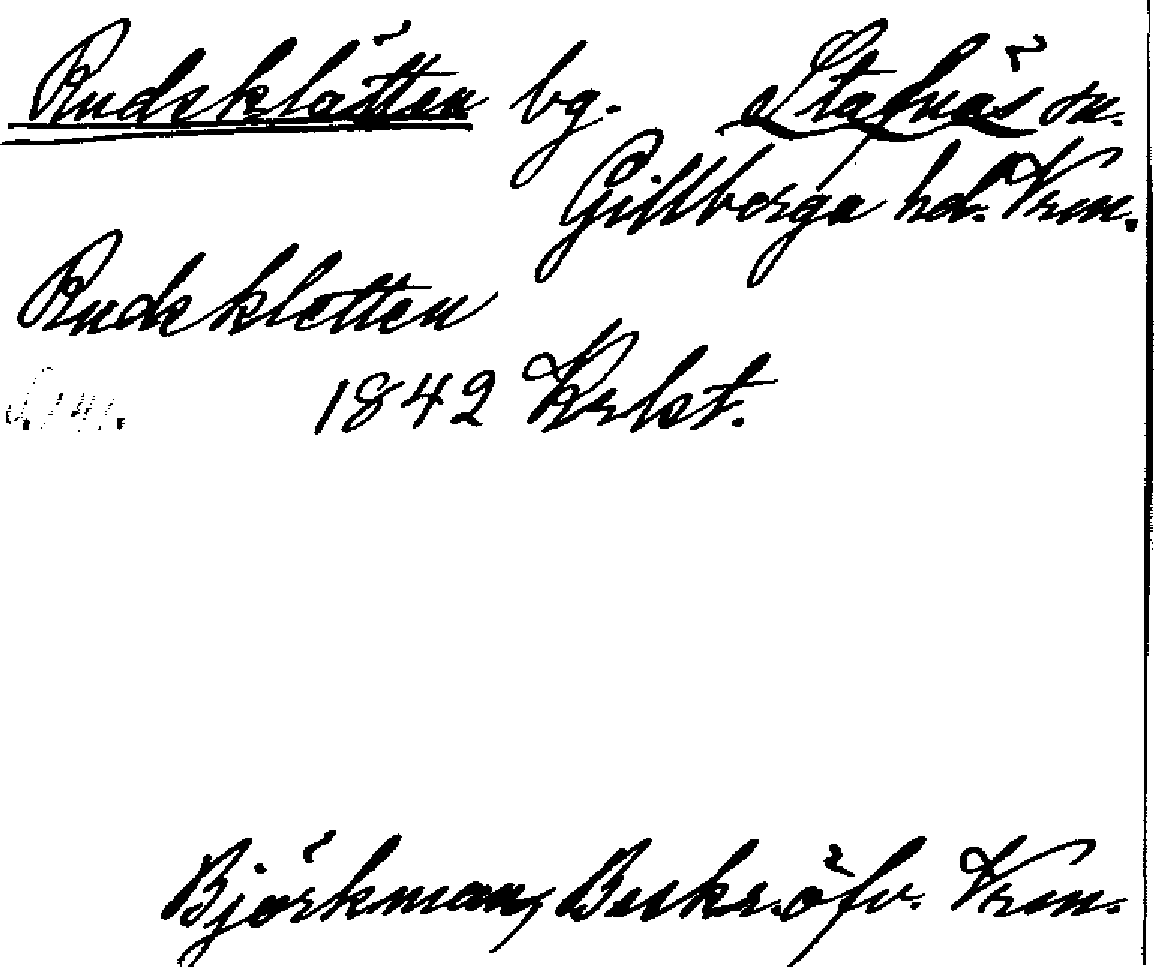 Rudsklätten bg. Stafnäs sn.
Gillberga hd. Vrm.
Rudskletten
1842 Krbst.
Björkman, Beskr. öfv. Vrm.